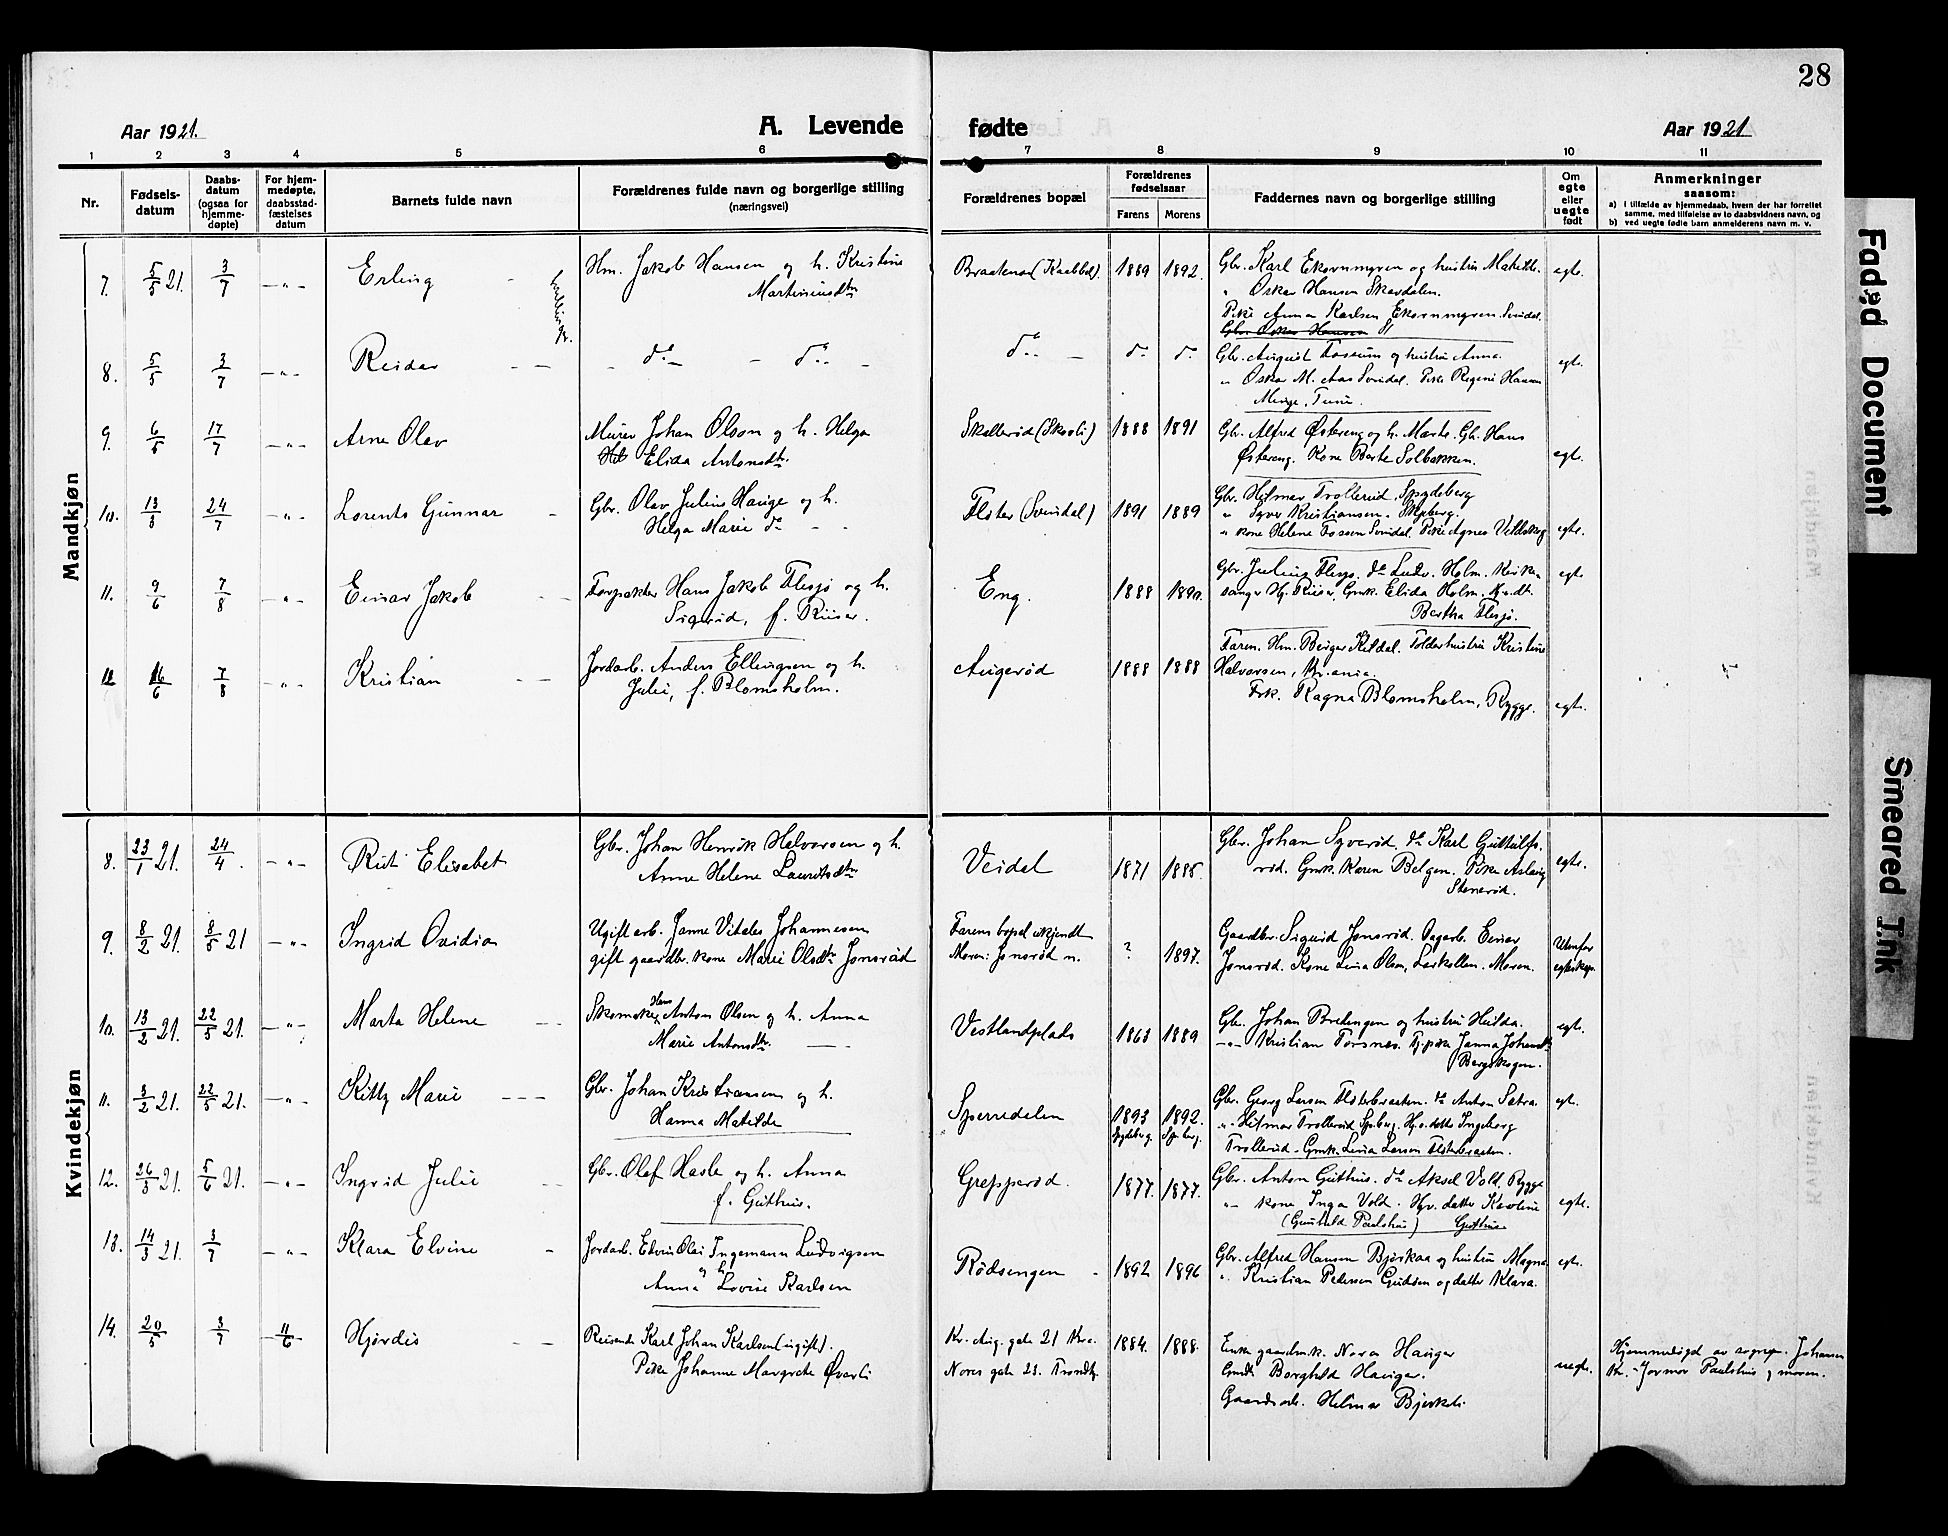 28
Aar 1921.
A. Levende
fødte
Aar 1921
1 2 3 4 5 6 7 8 9 10 11
Nr.
Fødsels-
datum
Daabs-
datum
(ogsaa for
hjemme-
døpte)
For hjem-
medøpte,
daabsstad-
fæstelses
datum
Barnets fulde navn
Forældrenes fulde navn og borgerlige stilling
(næringsvei)
Forældrenes bopæl
Forældrenes
fødselsaar
Farens Morens
Faddernes navn og borgerlige stilling
Om
egte
eller
uegte
født
Anmerkninger
saasom:
a) I tilfælde av hjemmedaab, hvem der har forrettet
samme, med tilføielse av to daabsvidners navn, og
b) ved uegte fødte barn anmelderens navn m. v.
Mandkjøn
7. 5/5 21. 3/7 —„— Erling
Hm. Jakob Hansen og h. Kristine
Martiniusdtr
1889 1892.
Gbr. Karl Ekornmyren og hustru Mathilde.
„ Oskar Hansen Skovdalen.
Pike Anna Karlsen Ekornmyren. Svindal.
Gbr. Oskar Hansen
egte.
8. 5/5 3/7 —„— Reidar
do — do
do — do do
Gbr. August Fossum og hustru Anna.
„ Oskar M. Aas Svindal. Pike Regine Hansen
egte.
9. 6/5 17/7 —„— Arne Olav
Murer Johan Olson og h. Helga
Hel Elida Antonsdtr.
1888 1891
Gbr. Alfred Østereng og h. Marta. Gbr. Hans
Østereng. Kone Berte Solbakken.
egte.
10. 13/3 24/7 —„— Lorents Gunnar
Gbr. Olav Julius Hauge og h.
Helga Marie do
Elster (Svindal) 1891 1889
Gbr. Hilmar Trollerud. Spydeberg
„ Syver Kristiansen. Spyberg.
„ kone Helene Fossen Svindal. Pike Agnes
egte.
11. 9/6 7/8 —„— Einar Jakob
Forpakter Hans Jakob Flesjø og h.
Sigrid, f. Riiser.
Eng. 1888 1890.
Gbr. Julius Flesjø. do Ludv. Holm. Kirke-
sanger Hj. Riiser. Gmk. Elida Holm.
Bertha Flesjø.
egte.
12 16/6 7/8 —„— Kristian
Jordarb. Anders Ellingsen og h.
Julie, f. Blomsholm.
Augerød 1888 1888
Faren. Hm. Birger Kildal. Tolderhustru Kristine
Halvorsen, Kr.ania.
Frk. Ragna Blomsholm, Rygge.
egte.
Kvindekjøn
8. 23/1 21. 24/4 —„— Rut Elisabet
Gbr. Johan Henrik Halvorsen og h.
Anne Helene Lauritsdtr
Veidal 1871 1885.
Gbr. Johan Syverød. do Karl Guttuls-
rød. Gmk. Karen Belgen. Pike Aslaug
Stenerød.
egte.
9. 8/2 21. 8/5 21 —„— Ingrid Ovidia
Ugift arb. Janne Vitales Johannesen
gift gaardbr. kone Marie Olsdtr Jonsrød
Farens bopæl ukjendt
Moren: Jonsrød n.
? 1897.
Gaardbr. Sigurd Jonsrød. Dagarb. Einar
Jonsrød. Kone Lina Olsen, Larkollen. Moren.
Utenfor
egteskap.
10. 13/2 21. 22/5 21. —„— Marta Helene
Skomaker Hans Anton Olsen og h. Anna
Marie Antonsdtr.
Vestlandplads 1863 1889
Gbr. Johan Bredengen og hustru Hulda.
—„— Kristian Torsnes. Tj.pike Janna Johansdtr
Bergskogen.
egt.
11. 8/2 21. 22/5 21. —„— Kitty Marie
Gbr. Johan Kristiansen og h.
Hanna Matilde
Sperredalen 1893 1892.
Spydeberg. Spberg.
Gbr. Georg Larsen Elsterbraaten. do Anton Sætra.
„ Hilmar Trollerud Spberg. Hj.v. datter Ingeborg
Trollerud. Gmk. Lina Larsen Elsterbraaten.
egt.
12. 26/3 21. 5/6 21. —„— Ingrid Julie
Gbr. Olaf Hasle og h. Anna
f. Guthus.
Grepperød. 1877. 1877.
Gbr. Anton Guthus. do Aksel Vold, Rygge
„ kone Inga Vold. Hjv. datter Karoline
(Gunhild Paalshus) Guthus
egte.
13. 14/3 21. 3/7 —„— Klara Elvine
Jordarb. Edvin Olai Ingemann Ludvigsen
og h.
Anna Lovise Karlsen
Rødsengen 1892 1896
Gbr. Alfred Hansen Bjørkaa og hustru Magna
„ Kristian Pedersen Gudsen og datter Klara.
egte.
14. 20/5 3/7 11/6 Hjørdis
Reisende Karl Johan Karlsen (ugift).
Pike Johanne Margrete Øverli
Kr. Aug. gate 21 Kra.
Nores gate 23. Trondhj.
1884. 1888.
Enke gaardmk. Nora Hauger
Gmdt. Borghild Hauger.
Gaardsarb. Hilmar Bjerkeli.
uegte.
Hjemmedøpt av sognepr. Johansen
Kr. - Jormor Paalshus og moren.
Faded Document
Smeared Ink